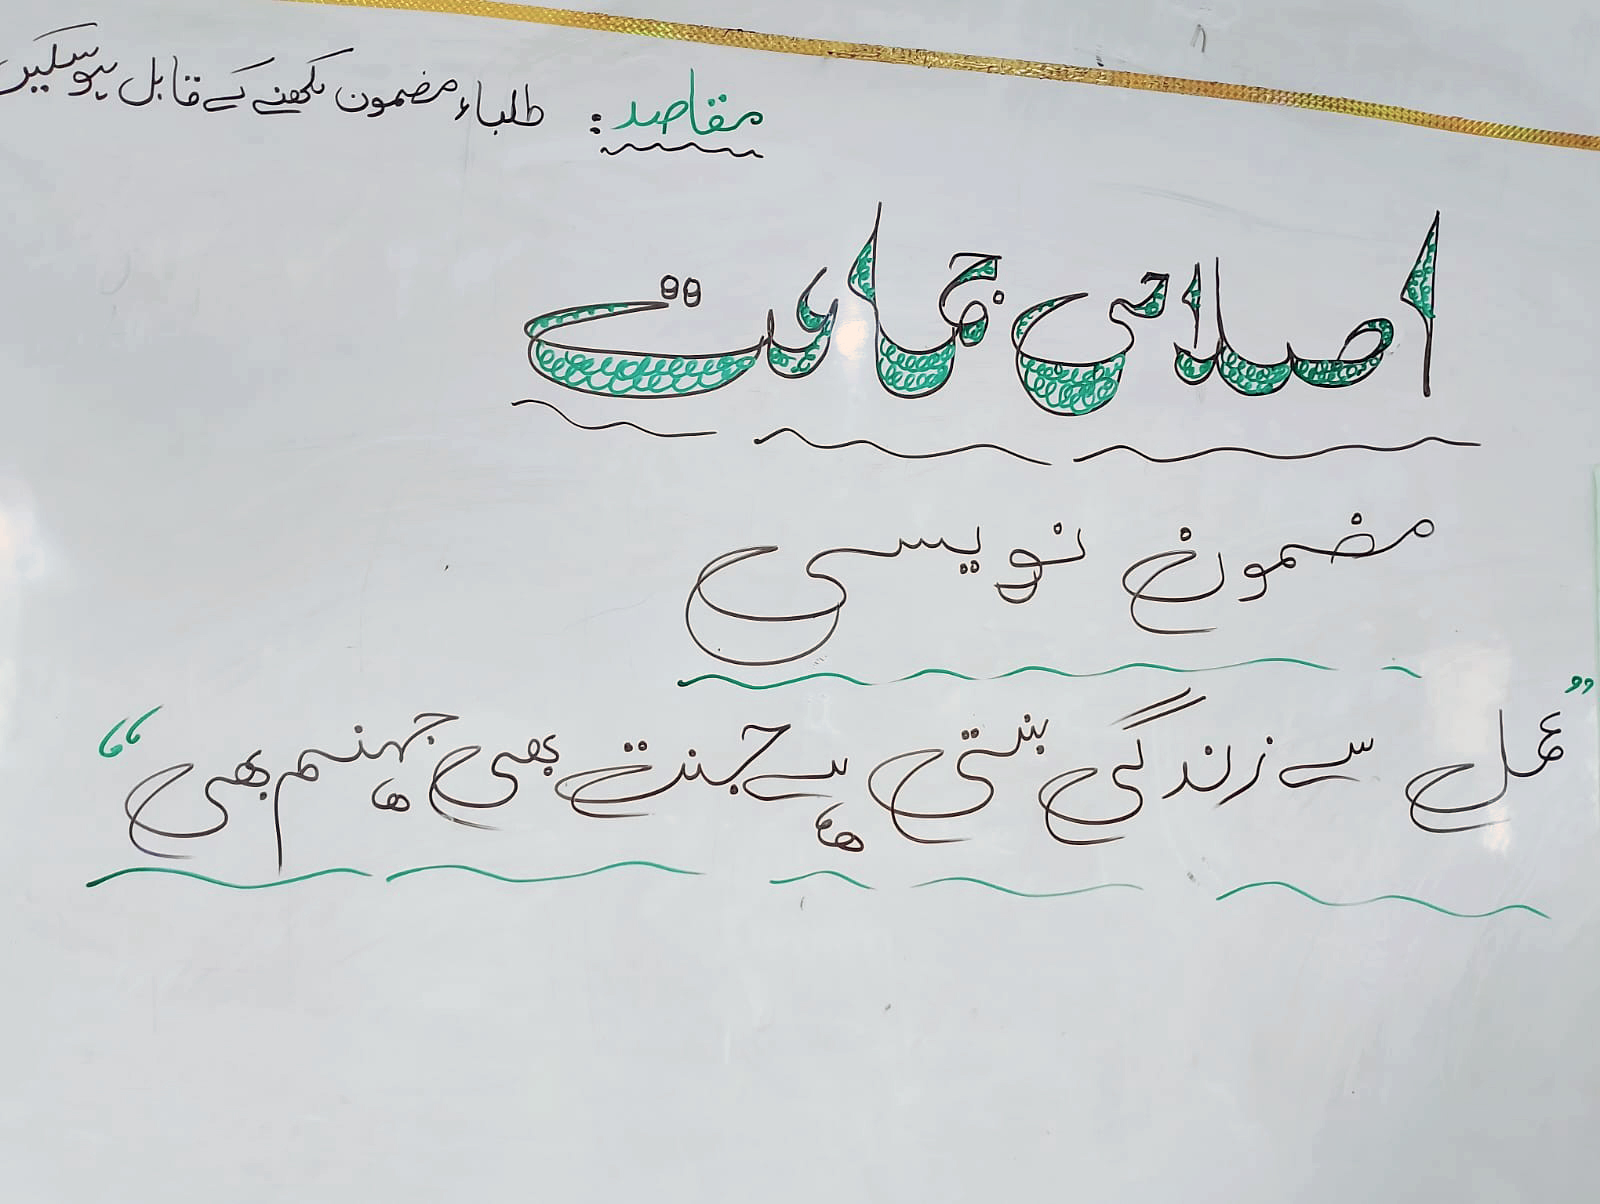 مقاصد: طلباء مضمون لکھنے کے قابل ہوسکیں
اصلاحی جماعت
مضمون نویسی
”عمل سے زندگی بنتی ہے جنت بھی جہنم بھی“